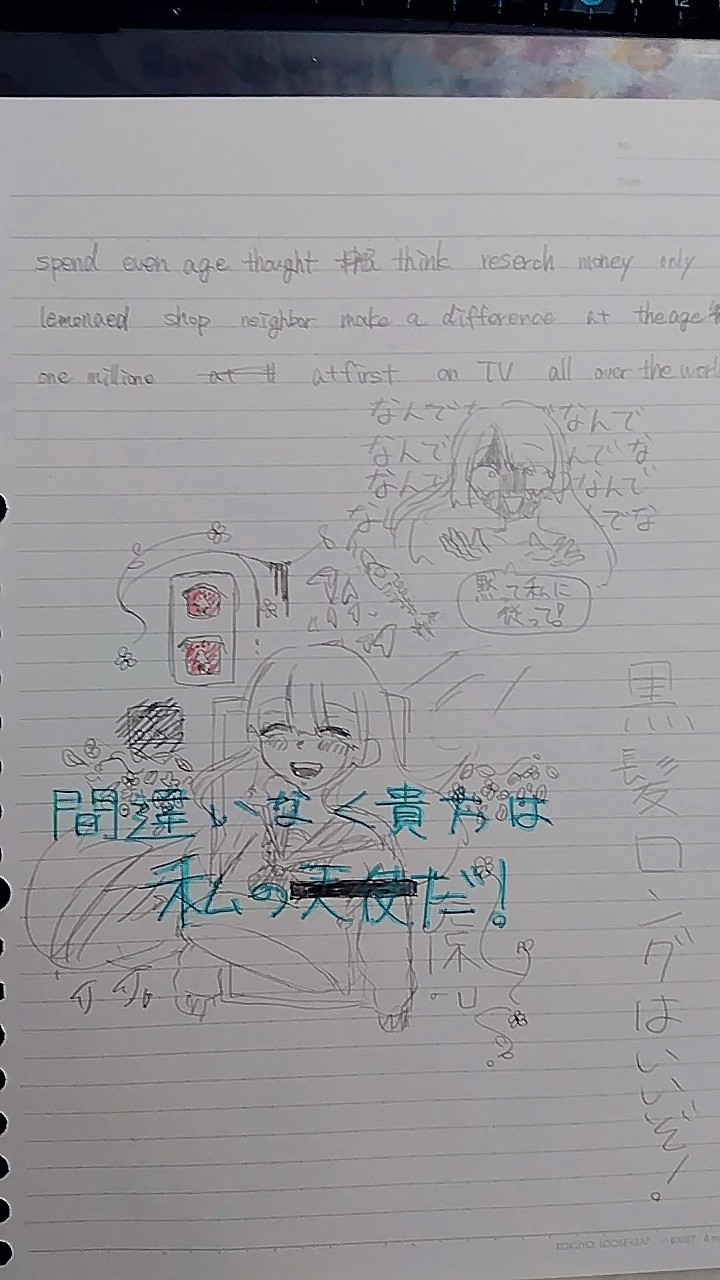 spend even age thought think reserch money only
lemonaed shop neighbor make a difference at the age
one millione at atfirst on TV all over the world
なんで なんで
なんで んでな
なんで なんで
なん でな
黙って私に
従って!
間違いなく貴方は
私の天使だ!
黒髪ロングはいいぞ!
KOKUYO LOOSE-LEAF